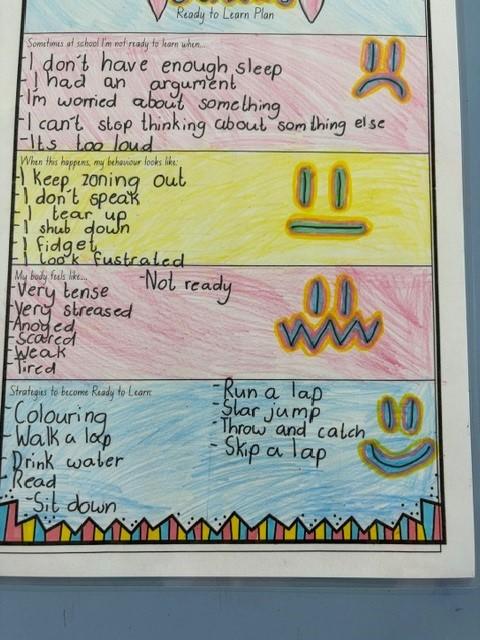 Ready to Learn Plan
Sometimes at school I'm not ready to learn when...
-I don't have enough sleep
-I had an argument
-I'm worried about something
-I can't stop thinking about somthing else
-Its too loud
When this happens, my behaviour looks like:
-I keep zoning out
-I don't speak
-I tear up
-I shut down
-I fidget
-I look fustrated
My body feels like...
-Not ready
-Very tense
-Very streased
-Anoyed
-Scared
-Weak
-Tired
Strategies to become Ready to Learn:
-Colouring
-Walk a lap
-Drink water
-Read
-Sit down
-Run a lap
-Star jump
-Throw and catch
-Skip a lap